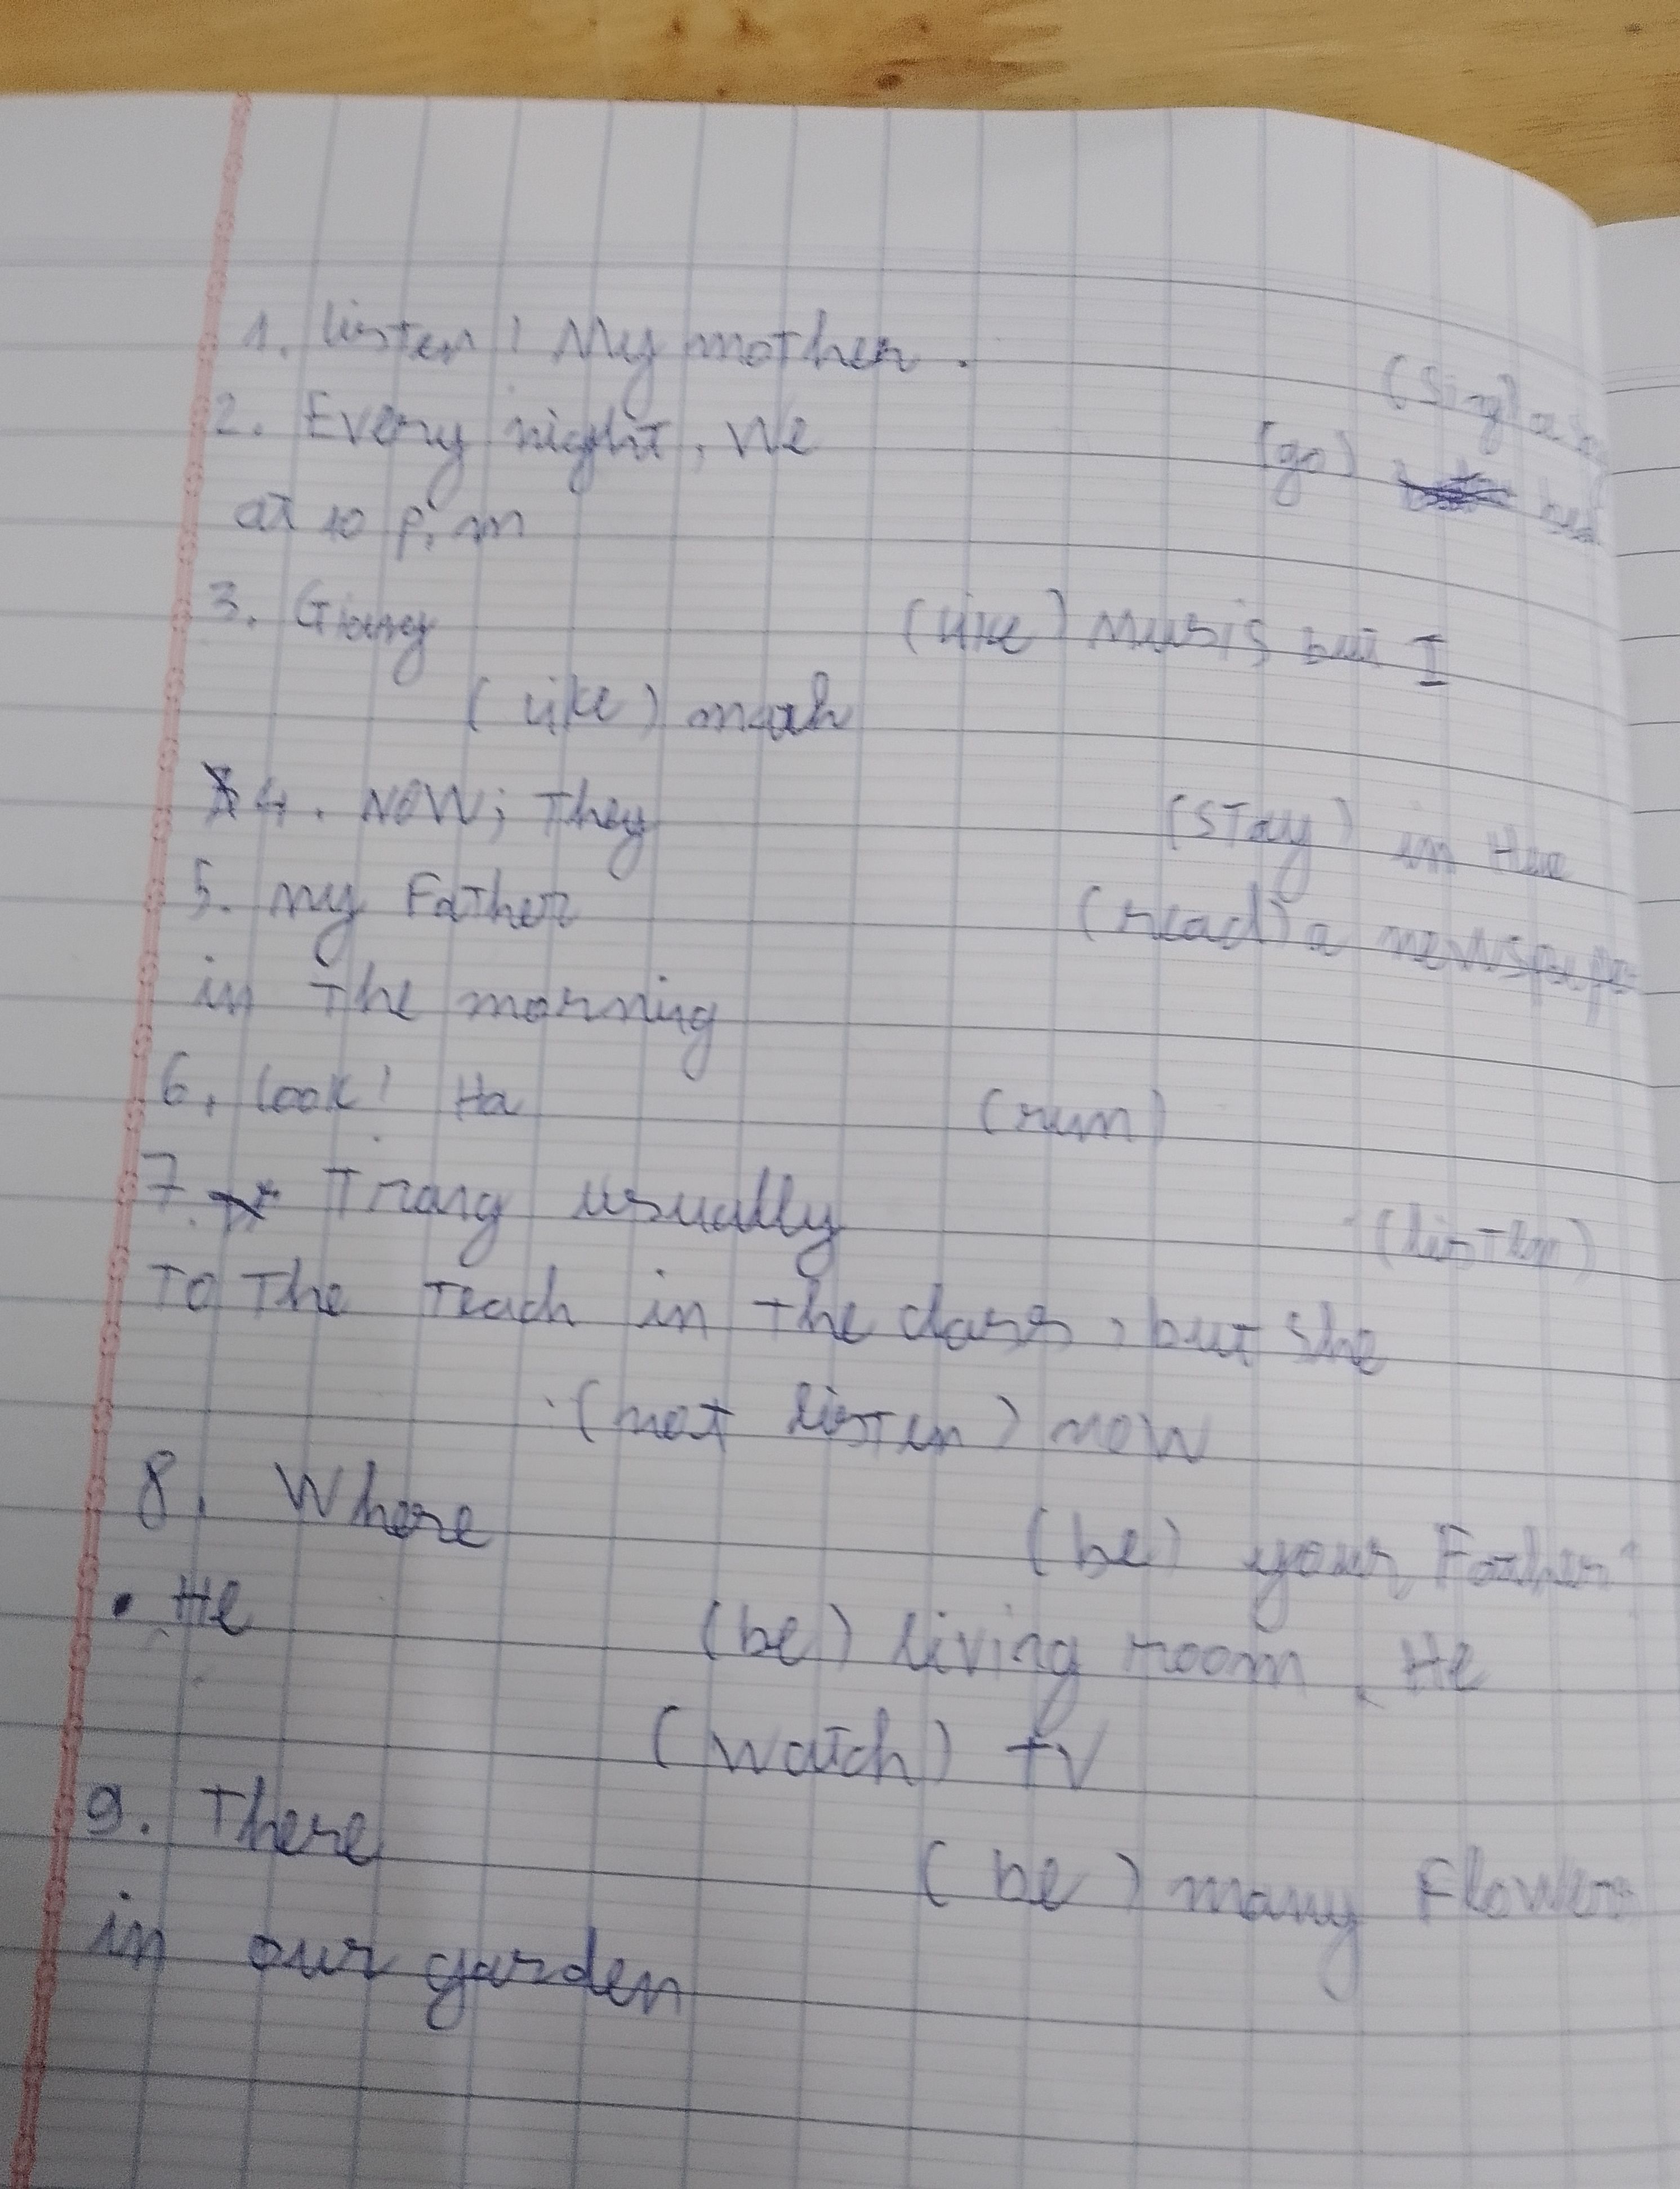 1. listen! My mother. (Sing) a
2. Every night, We (go) bed
at 10 p.m
3. Giang (like) Music but I
(like) math
4. NOW; They (stay) in Hue
5. my Father (read) a newspape
in the morning
6. look! Ha (run)
7. Trang usually (listen)
To The Teach in the class, but She
(not listen) now
8. Where (be) your Father?
He (be) living room. He
(watch) tV
9. There (be) many Flowers
in our garden